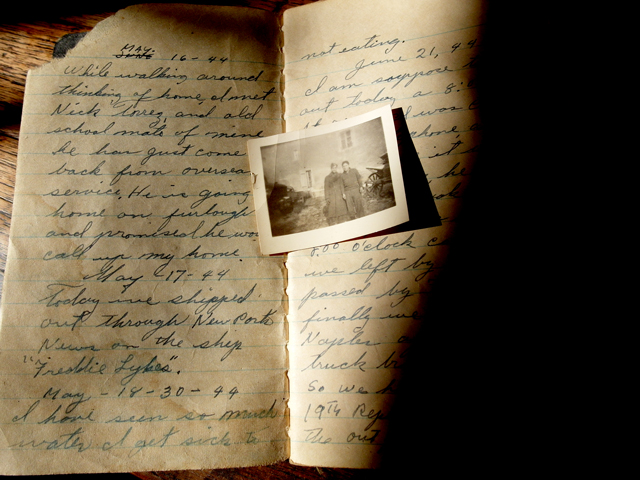 May
June 16-44
While walking around
thinking of home, I met
Nick Torrez, and old
school mate of mine
he has just come
back from oversea
service. He is going
home on furlough
and promised he wo
call up my home.
May -17-44
Today we shipped
out through New Ports
News on the ship
"Freddie Lykes".
May -18-30-44
I have seen so much
water I get sick to
not eating.
June 21, 44
I am suppose
out today a 8:
was
phone
it
he
8:00 O'clock
we left by
passed by
finally we
Naples
truck
So we
19th Rep
The out